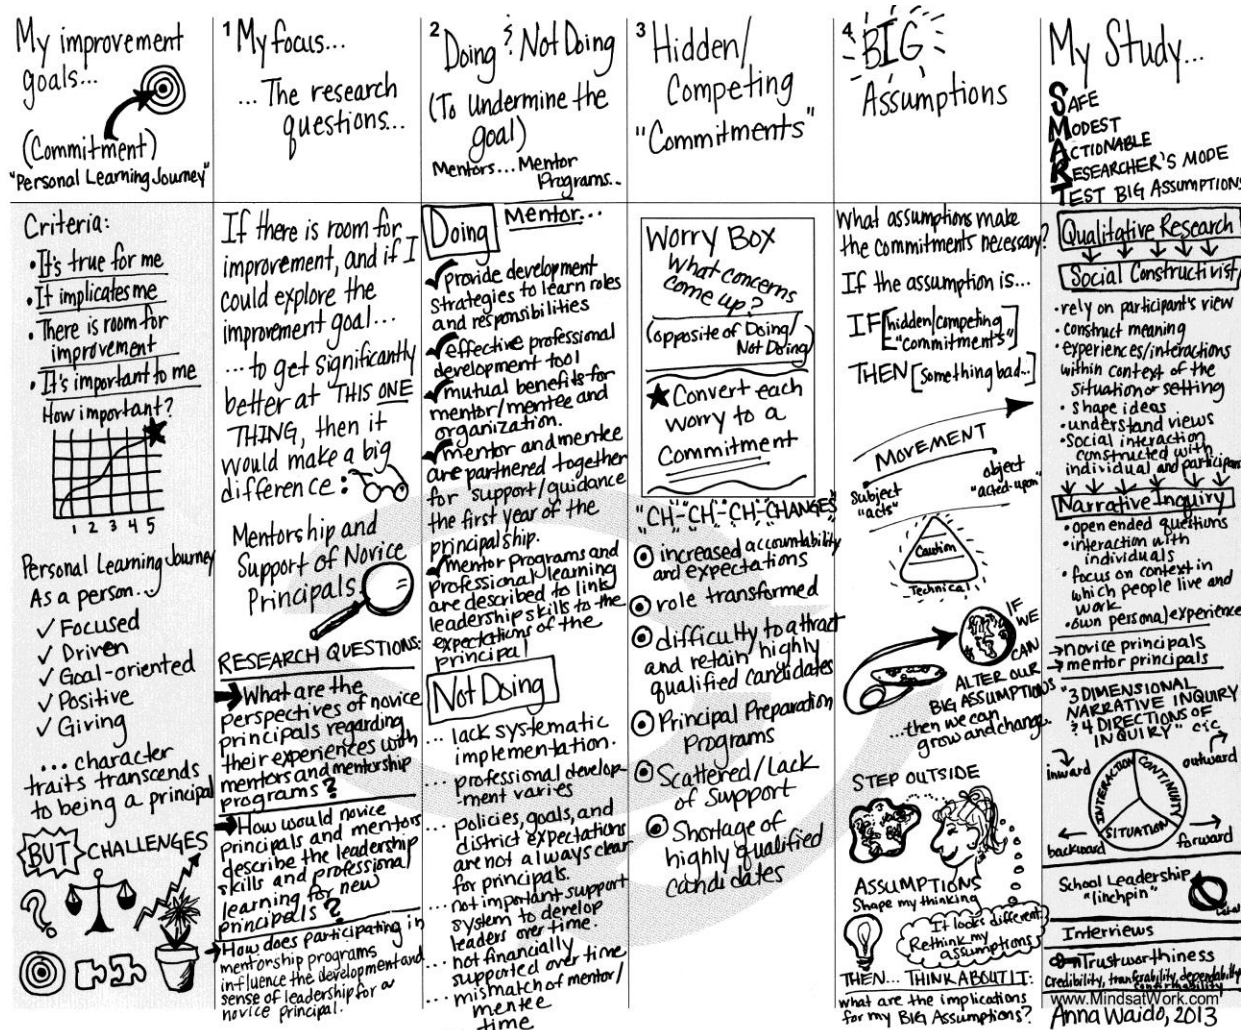 My improvement
goals...
(Commitment)
"Personal Learning Journey"
Criteria:
• It's true for me
• It implicates me
• There is room for
improvement
• It's important to me
How important?
1 2 3 4 5
Personal Learning Journey
As a person...
✓ Focused
✓ Driven
✓ Goal-oriented
✓ Positive
✓ Giving
... character
traits transcends
to being a principal
BUT CHALLENGES
1 My focus...
... The research
questions...
If there is room for
improvement, and if I
could explore the
improvement goal...
... to get significantly
better at THIS ONE
THING, then it
would make a big
difference:
Mentorship and
Support of Novice
Principals
RESEARCH QUESTIONS:
What are the
perspectives of novice
principals regarding
their experiences with
mentors and mentorship
programs?
How would novice
principals and mentors
describe the leadership
skills and professional
learning for new
principals?
How does participating in
mentorship programs
influence the development and
sense of leadership for a
novice principal.
2 Doing & Not Doing
(To undermine the
goal)
Mentors... Mentor
Programs...
Doing Mentor...
✓ provide development
strategies to learn roles
and responsibilities
✓ effective professional
development tool
✓ mutual benefits for
mentor/mentee and
organization.
✓ mentor and mentee
are partnered together
for support/guidance
the first year of the
principalship.
✓ mentor Programs and
professional learning
are described to link
leadership skills to the
expectations of the
principal
Not Doing
... lack systematic
implementation.
... professional develop-
ment varies
... policies, goals, and
district expectations
are not always clear
for principals.
... not important support
system to develop
leaders over time.
... not financially
supported over time
... mismatch of mentor/
mentee
time
3 Hidden/
Competing
"Commitments"
Worry Box
What concerns
come up?
(opposite of Doing/
Not Doing)
★ Convert each
worry to a
Commitment
"CH-CH-CH-CHANGES"
increased accountability
and expectations
role transformed
difficulty to attract
and retain highly
qualified candidates
Principal Preparation
Programs
Scattered/Lack
of Support
Shortage of
highly qualified
candidates
4 BIG
Assumptions
What assumptions make
the commitments necessary?
If the assumption is...
IF [hidden/competing
"commitments"]
THEN [something bad...]
MOVEMENT
Subject
"acts"
object
"acted-upon"
Caution
Technical
IF
WE
CAN
ALTER OUR
BIG ASSUMPTIONS
...then we can
grow and change.
STEP OUTSIDE
ASSUMPTIONS
Shape my thinking
It looks different.
Rethink my
assumptions
THEN... THINK ABOUT IT:
what are the implications
for my BIG Assumptions?
My Study...
SAFE
MODEST
ACTIONABLE
RESEARCHER'S MODE
TEST BIG ASSUMPTIONS
Qualitative Research
Social Constructivist/
• rely on participant's view
• construct meaning
• experiences/interactions
within context of the
situation or setting
• shape ideas
• understand views
• Social interaction
constructed with
individual and
Narrative Inquiry
• open ended questions
• interaction with
individuals
• focus on context in
which people live and
work
• own personal experience
→ novice principals
→ mentor principals
"3 DIMENSIONAL
NARRATIVE INQUIRY
& 4 DIRECTIONS OF
INQUIRY"
inward
outward
INTERACTION
CONTINUITY
SITUATION
backward
forward
School Leadership
"linchpin"
Interviews
Trustworthiness
Credibility, transferability, dependability
confirmability
www.MindsatWork.com
Anna Waido, 2013